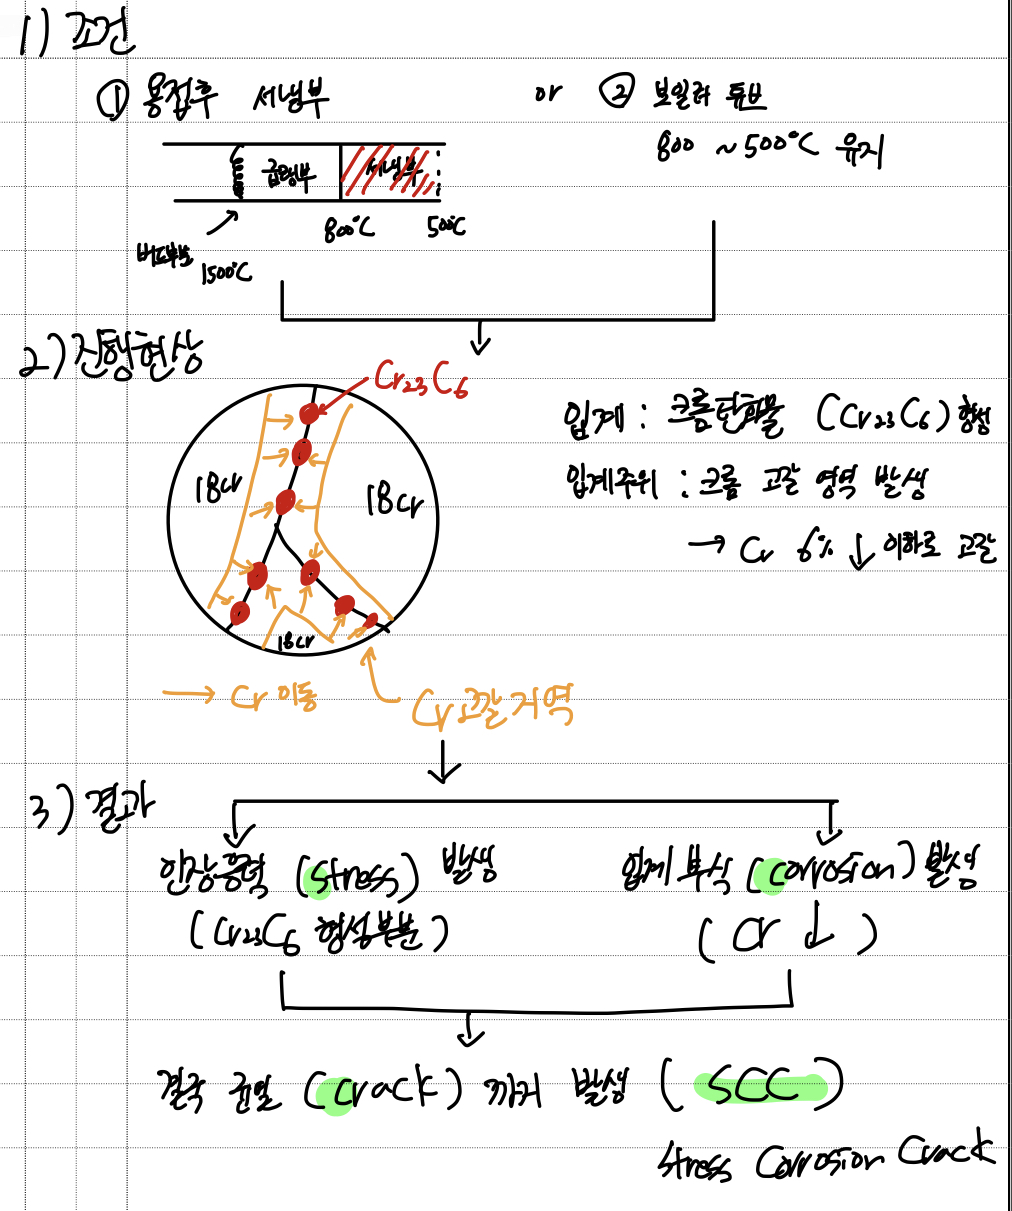 1) 조건
① 용접후 서냉부 or ② 보일러 튜브
800 ~ 500°C 유지
급랭부 서냉부
800°C 500°C
비드부분
1500°C
2) 진행현상
Cr23C6
입계 : 크롬탄화물 (Cr23C6) 형성
18Cr 18Cr
입계주위 : 크롬 고갈 영역 발생
→ Cr 6% ↓ 이하로 고갈
18Cr
→ Cr 이동
Cr고갈지역
3) 결과
인장응력 (stress) 발생
(Cr23C6 형성부분)
입계 부식 (corrosion) 발생
(Cr ↓)
결국 균열 (crack) 까지 발생 (SCC)
Stress Corrosion Crack